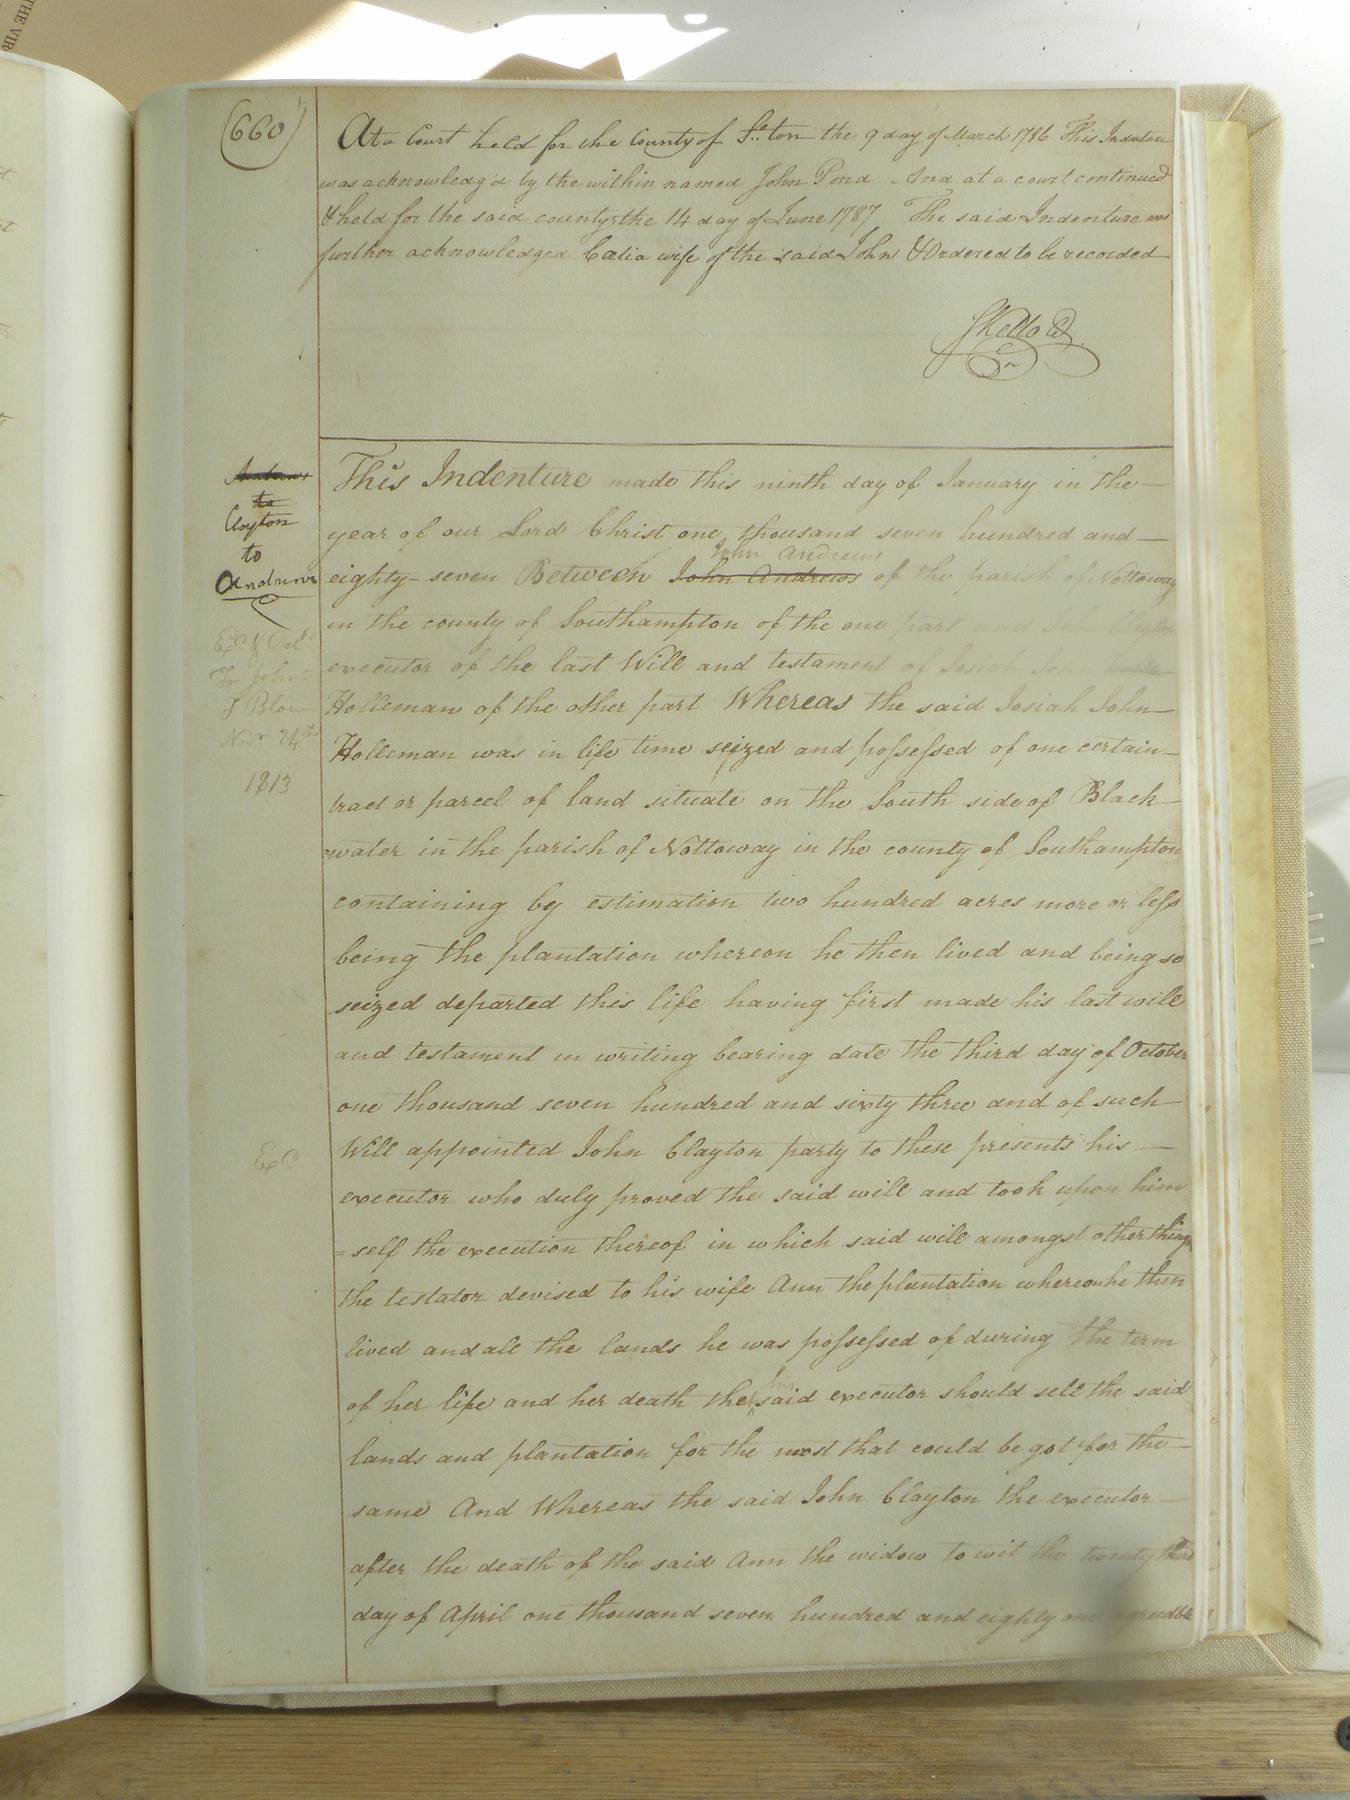 THE VIR
(660)
At a Court held for the County of So.ton the 9 day of March 1786 This Indenture
was acknowledg'd by the within named John Pond And at a court continued
& held for the said county the 14 day of June 1787 The said Indenture was
further acknowledged Celia wife of the said John & Ordered to be recorded
Andrews
to
Clayton
to
Andrews
Exd & Deld
To John
T Blow
Novr 24th
1813
This Indenture made this ninth day of January in the
year of our Lord Christ one thousand seven hundred and
John Andrews
eighty-seven Between John Andrews of the parish of Nottoway
in the county of Southampton of the one part and John Clayton
executor of the last Will and testament of Josiah John
Holleman of the other part Whereas the said Josiah John
Holleman was in life time seized and possessed of one certain
tract or parcel of land situate on the South side of Black
water in the parish of Nottoway in the county of Southampton
containing by estimation two hundred acres more or less
being the plantation whereon he then lived and being so
seized departed this life having first made his last will
and testament in writing bearing date the third day of October
one thousand seven hundred and sixty three and of such
Will appointed John Clayton party to these presents his
Exd
executor who duly proved the said will and took upon him
=self the execution thereof in which said will amongst other things
the testator devised to his wife Ann the plantation whereon he then
lived and all the lands he was possessed of during the term
of her life and her death the said executor should sell the said
lands and plantation for the most that could be got for the
same And Whereas the said John Clayton the executor
after the death of the said Ann the widow to wit the twenty third
day of April one thousand seven hundred and eighty one agreeable